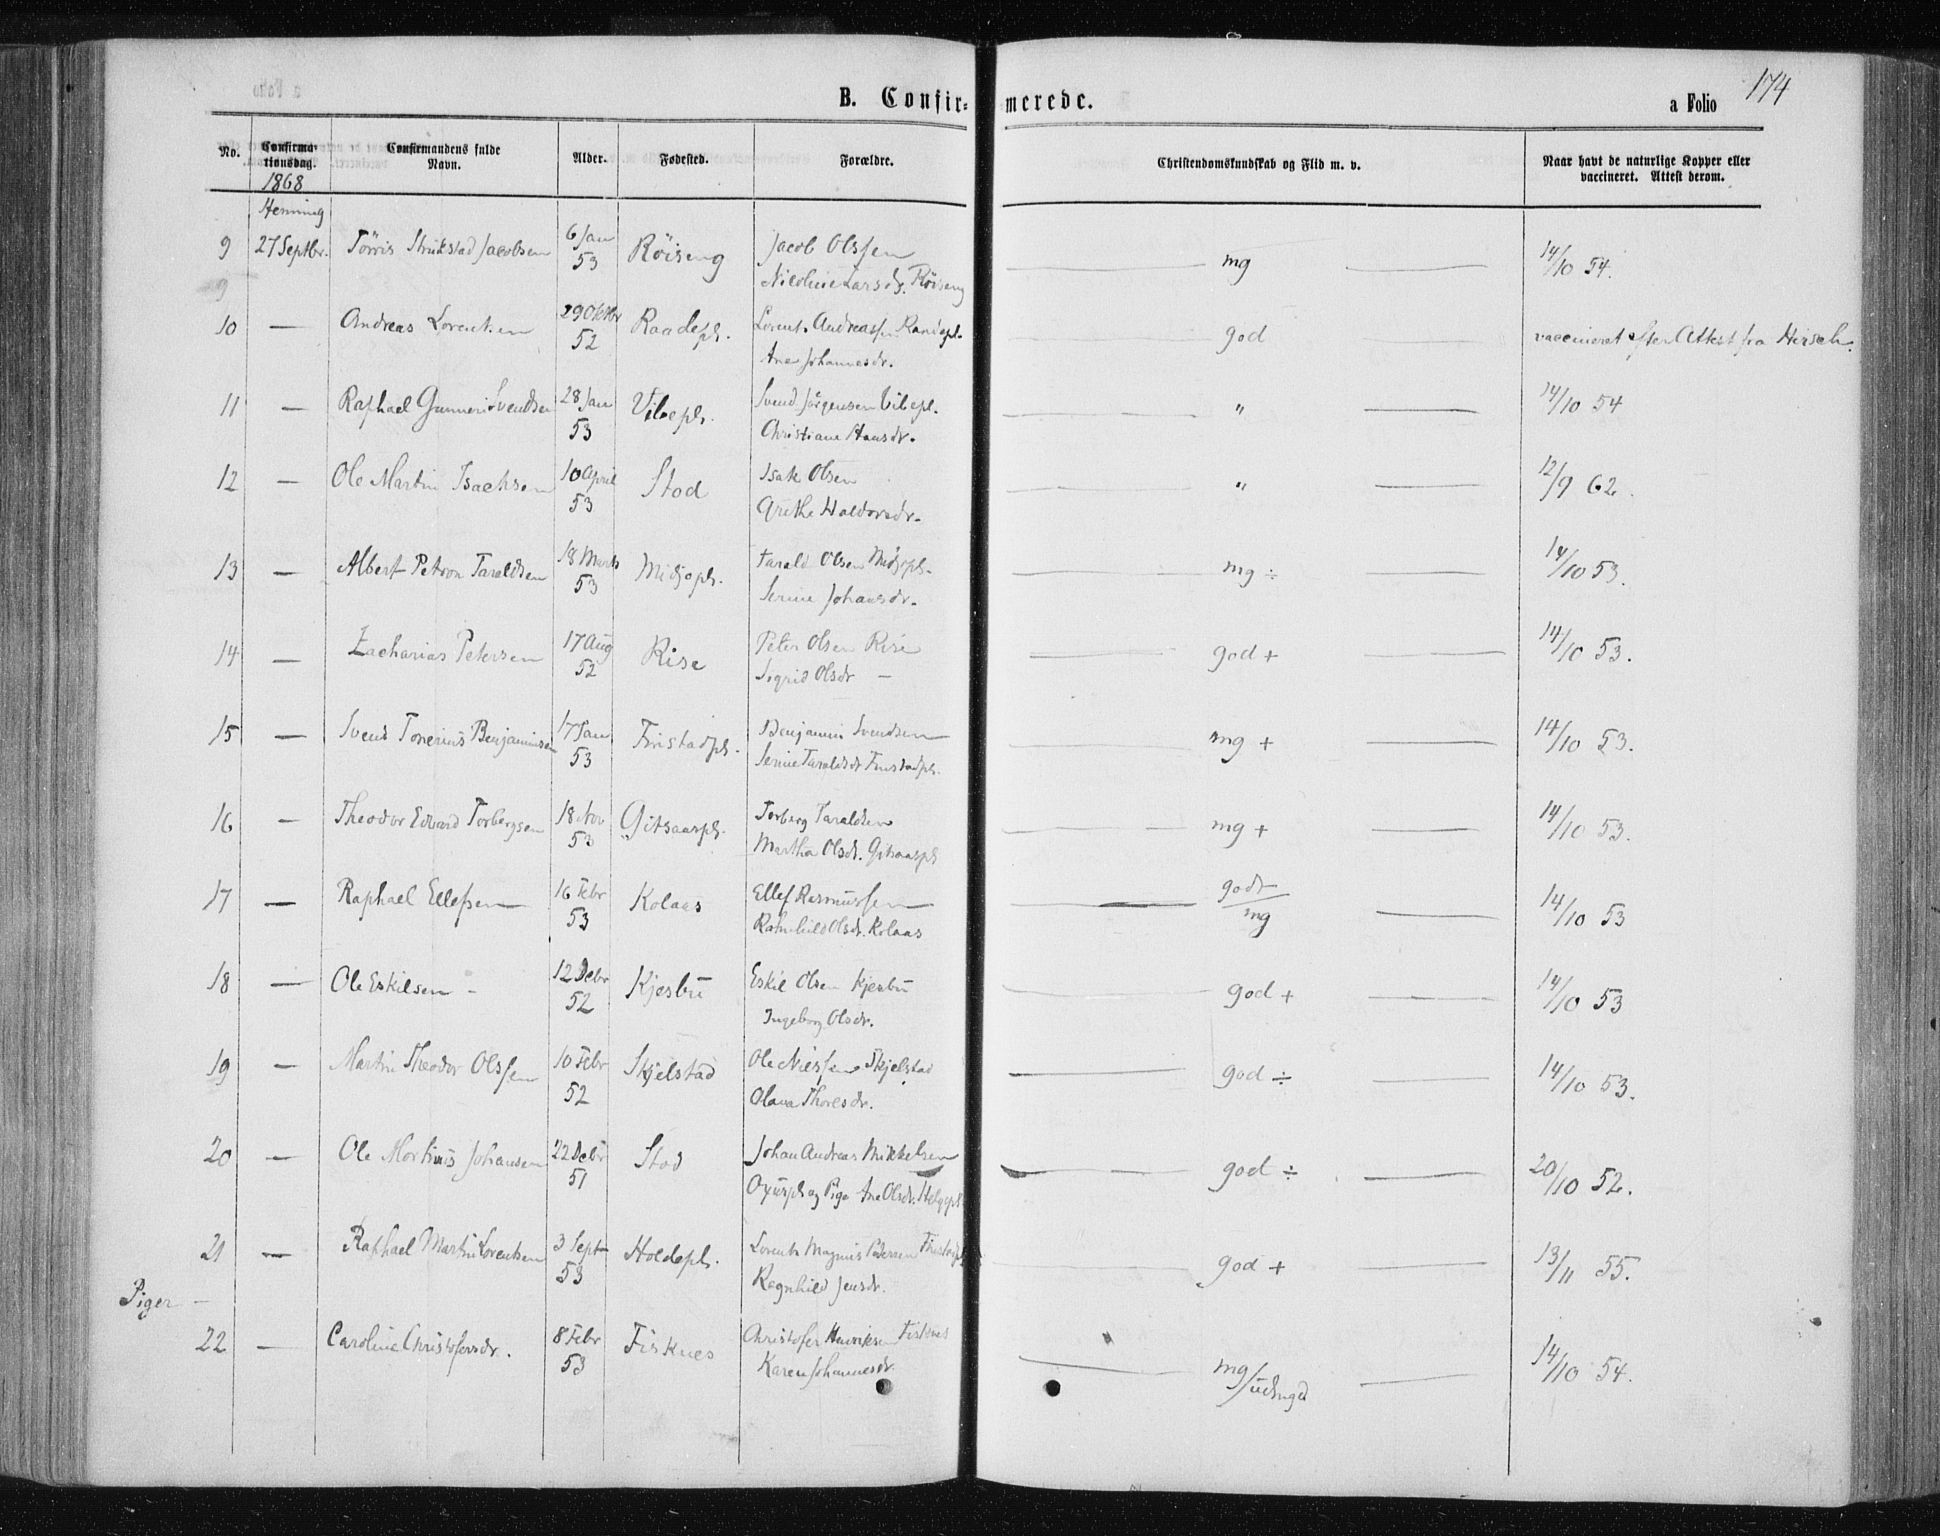 174
B. Confir- merede.
a Folio
No.
Confirma-
tionsdag.
Confirmandens fulde
Navn.
Alder.
Fødested.
Forældre.
Christendomskundskab og Flid m. v.
Naar havt de naturlige Kopper eller
vaccineret. Attest derom.
1868
Henning
9 27 Septbr. Törris Jacobsen 6 Jan 53 Röiseng Jacob Olssen mg 14/10 54.
Nicoline Larsdr. Röiseng
10 — Andreas Lorentsen 29 Oktbr 52 Raadepl. Lorents Andreassen Raadepl. god vaccineret efter Attest fra Hirsch.
Ane Johannesdr.
11 — Raphael Gunneri Svendsen 28 Jan 53 Vibepl. Svend Jörgensen Vibepl. " 14/10 54
Christiane Hansdr.
12 — Ole Martin Isachsen 10 April 53 Stod Isak Olsen " 12/9 62.
Grethe Haldorsdr.
13 — Albert Petron Taraldsen 18 Marts 53 Midjopl. Tarald Olsen Midjopl. mg ÷ 14/10 53.
Serine Johansdr.
14 — Zacharias Petersen 17 Aug 52 Rise Peter Olsen Rise god + 14/10 53.
Sigrid Olsdr —
15 — Svend Tonerius Benjaminsen 17 Jan 53 Finstadpl. Benjamin Svendsen mg + 14/10 53.
Serine Taraldsdr Finstadpl.
16 — Theodor Edvard Torbergsen 18 Nov 53 Gitsaaspl. Torberg Taraldsen mg + 14/10 53.
Martha Olsdr. Gitsaaspl
17 — Raphael Ellefsen 16 Febr 53 Kolaas Ellef Rasmussen godt/mg 14/10 53
Ranhild Olsdr. Kolaas
18 — Ole Eskilsen — 12 Debr 52 Kjesbu Eskil Olsen Kjesbu god + 14/10 53
Ingeborg Olsdr.
19 — Martin Theodor Olssen 10 Febr 52 Skjelstad Ole Nilssen Skjelstad god ÷ 14/10 53.
Olava Thoresdr.
20 — Ole Martinus Johansen 22 Debr 51 Stod Johan Andreas Mikkelsen god ÷ 20/10 52.
og Pige Ane Olsdr. Helgepl
21 — Raphael Martin Lorentsen 3 Sept 53 Holdepl. Lorents Magnus Pedersen Finstadpl god + 13/11 55.
Ragnhild Jensdr.
Piger —
22 — Caroline Christofersdr. 8 Febr 53 Fisknes Christofer Henriksen Fisknes mg/udmgd 14/10 54.
Karen Johannesdr.